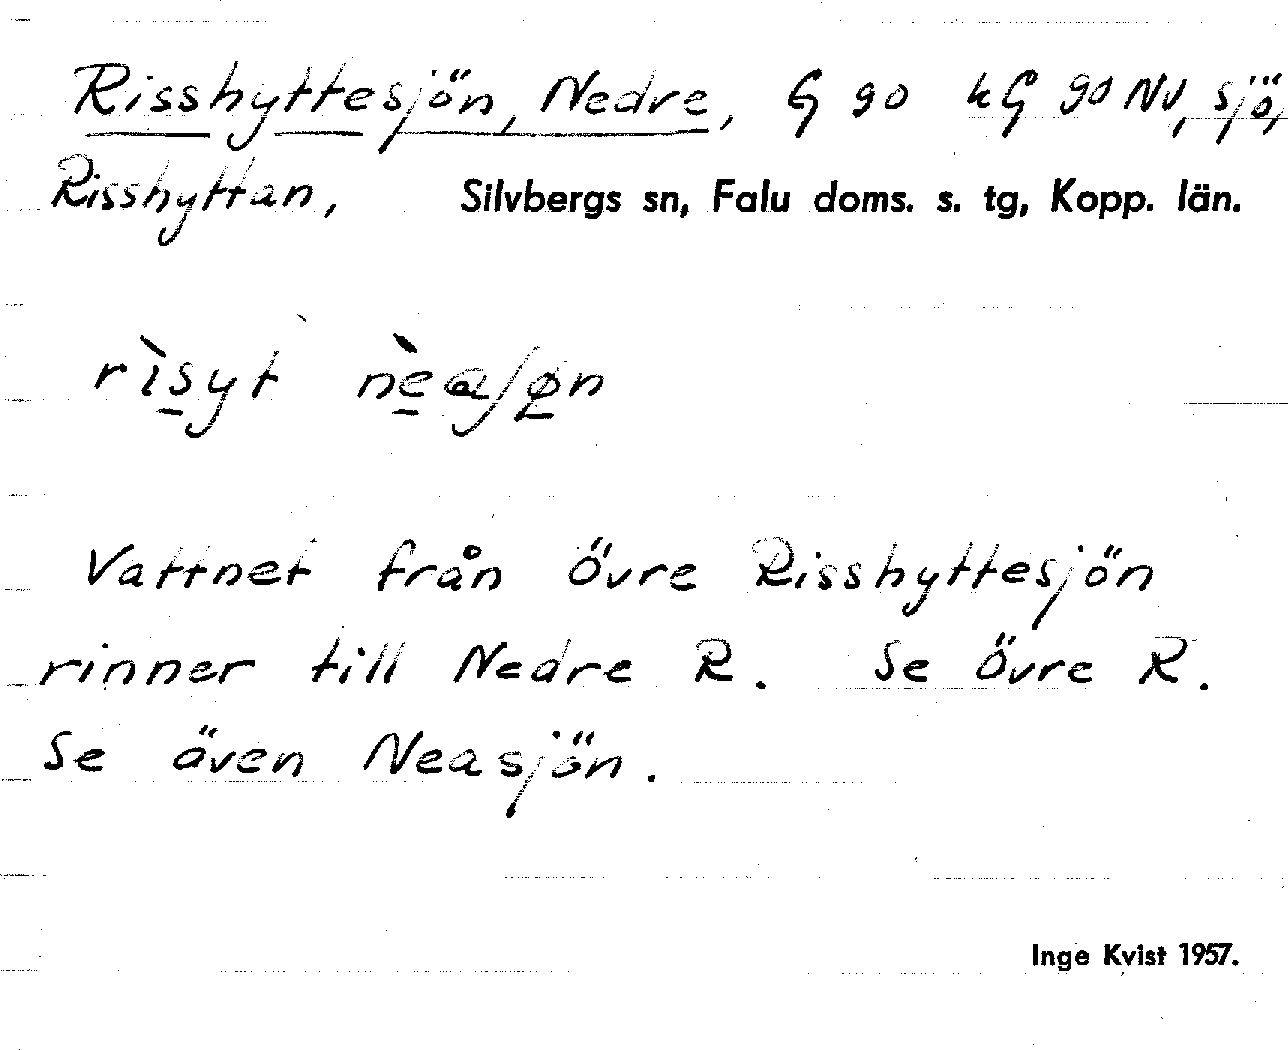 Risshyttesjön, Nedre, G 90 kG 90 NV, sjö,
Risshyttan, Silvbergs sn, Falu doms. s. tg, Kopp. län.
Vattnet från Övre Risshyttesjön
rinner till Nedre R. Se Övre R.
Se även Neasjön.
Inge Kvist 1957.